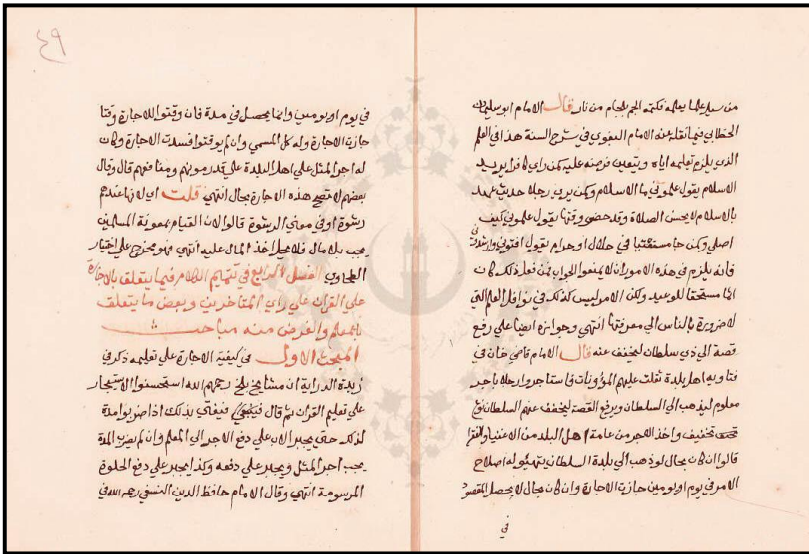 من سيل علما يعلمه فكتمه الجم بلجام من نار قال الامام ابو سليمان
الخطابي فيما نقله عنه الامام البغوي في شرح السنة هذا في العلم
الذي يلزم تعليمه اياه ويتعين فرضه عليه كمن راي كافرا يريد
الاسلام يقول علموني ما الاسلام وكمن يري رجلا حديث عهد
بالاسلام لا يحسن الصلاة وقد حضر وقتها يقول علموني كيف
اصلي وكمن جا مستفتيا في حلال او حرام يقول افتوني وارشدوني
فانه يلزم في هذه الامور ان لا يمنعوا الجواب فمن فعل ذلك كان
اثما مستحقا للوعيد ولكن الامر ليس كذلك في نوافل العلم التي
لا ضرورة بالناس الي معرفتها انتهي وجوابه ايضا علي رفع
قصة الي ذي سلطان ليخفف عنه قال الامام قاضي خان في
فتاويه اهل بلدة ثقلت عليهم المؤونات فاستاجروا رجلا باجر
معلوم ليذهب الي السلطان ويرفع القصة ليخفف عنهم السلطان نوع
تخفيف واخذ الاجر من عامة اهل البلد من الاغنيا والفقرا
قالوا ان كان بحال لو ذهب الي بلدة السلطان يتهيؤ له اصلاح
الامر في يوم او يومين جازت الاجارة وان كان بحال لا يحصل المقصود
في
٤٩
في يوم او يومين وانما يحصل في مدة فان وقتوا للاجارة وقتا
جازت الاجارة وله كل المسمي وان لم يوقتوا فسدت الاجارة وكان
له اجر المثل علي اهل البلدة علي قدر مونهم ومنافعهم قال وقال
بعضهم لا تصح هذه الاجارة بحال انتهي قلت اي لانها عندهم
رشوة او في معني الرشوة قالوا لان القيام بمعونة المسلمين
يجب بلا مال فلا يحل اخذ المال عليه انتهي فهو مخرج علي اختيار
الطحاوي الفصل الرابع في تتميم الكلام فيما يتعلق بالاجارة
علي القران علي راي المتاخرين وبعض ما يتعلق
بالمعلم والغرض منه مباحث
المبحث الاول في كيفية الاجارة علي تعليمه ذكر في
زبدة الدراية ان مشايخ بلخ رحمهم الله استحسنوا الاستيجار
علي تعليم القران ثم قال فيفتي بذلك اذا ضربوا مدة
لذلك حتي يجبر الاب علي دفع الاجر الي المعلم وان لم يضرب المدة
يجب اجر المثل ويجبر علي دفعه وكذا يجبر علي دفع الحلوة
المرسومة انتهي وقال الامام حافظ الدين النسفي رحمه الله في